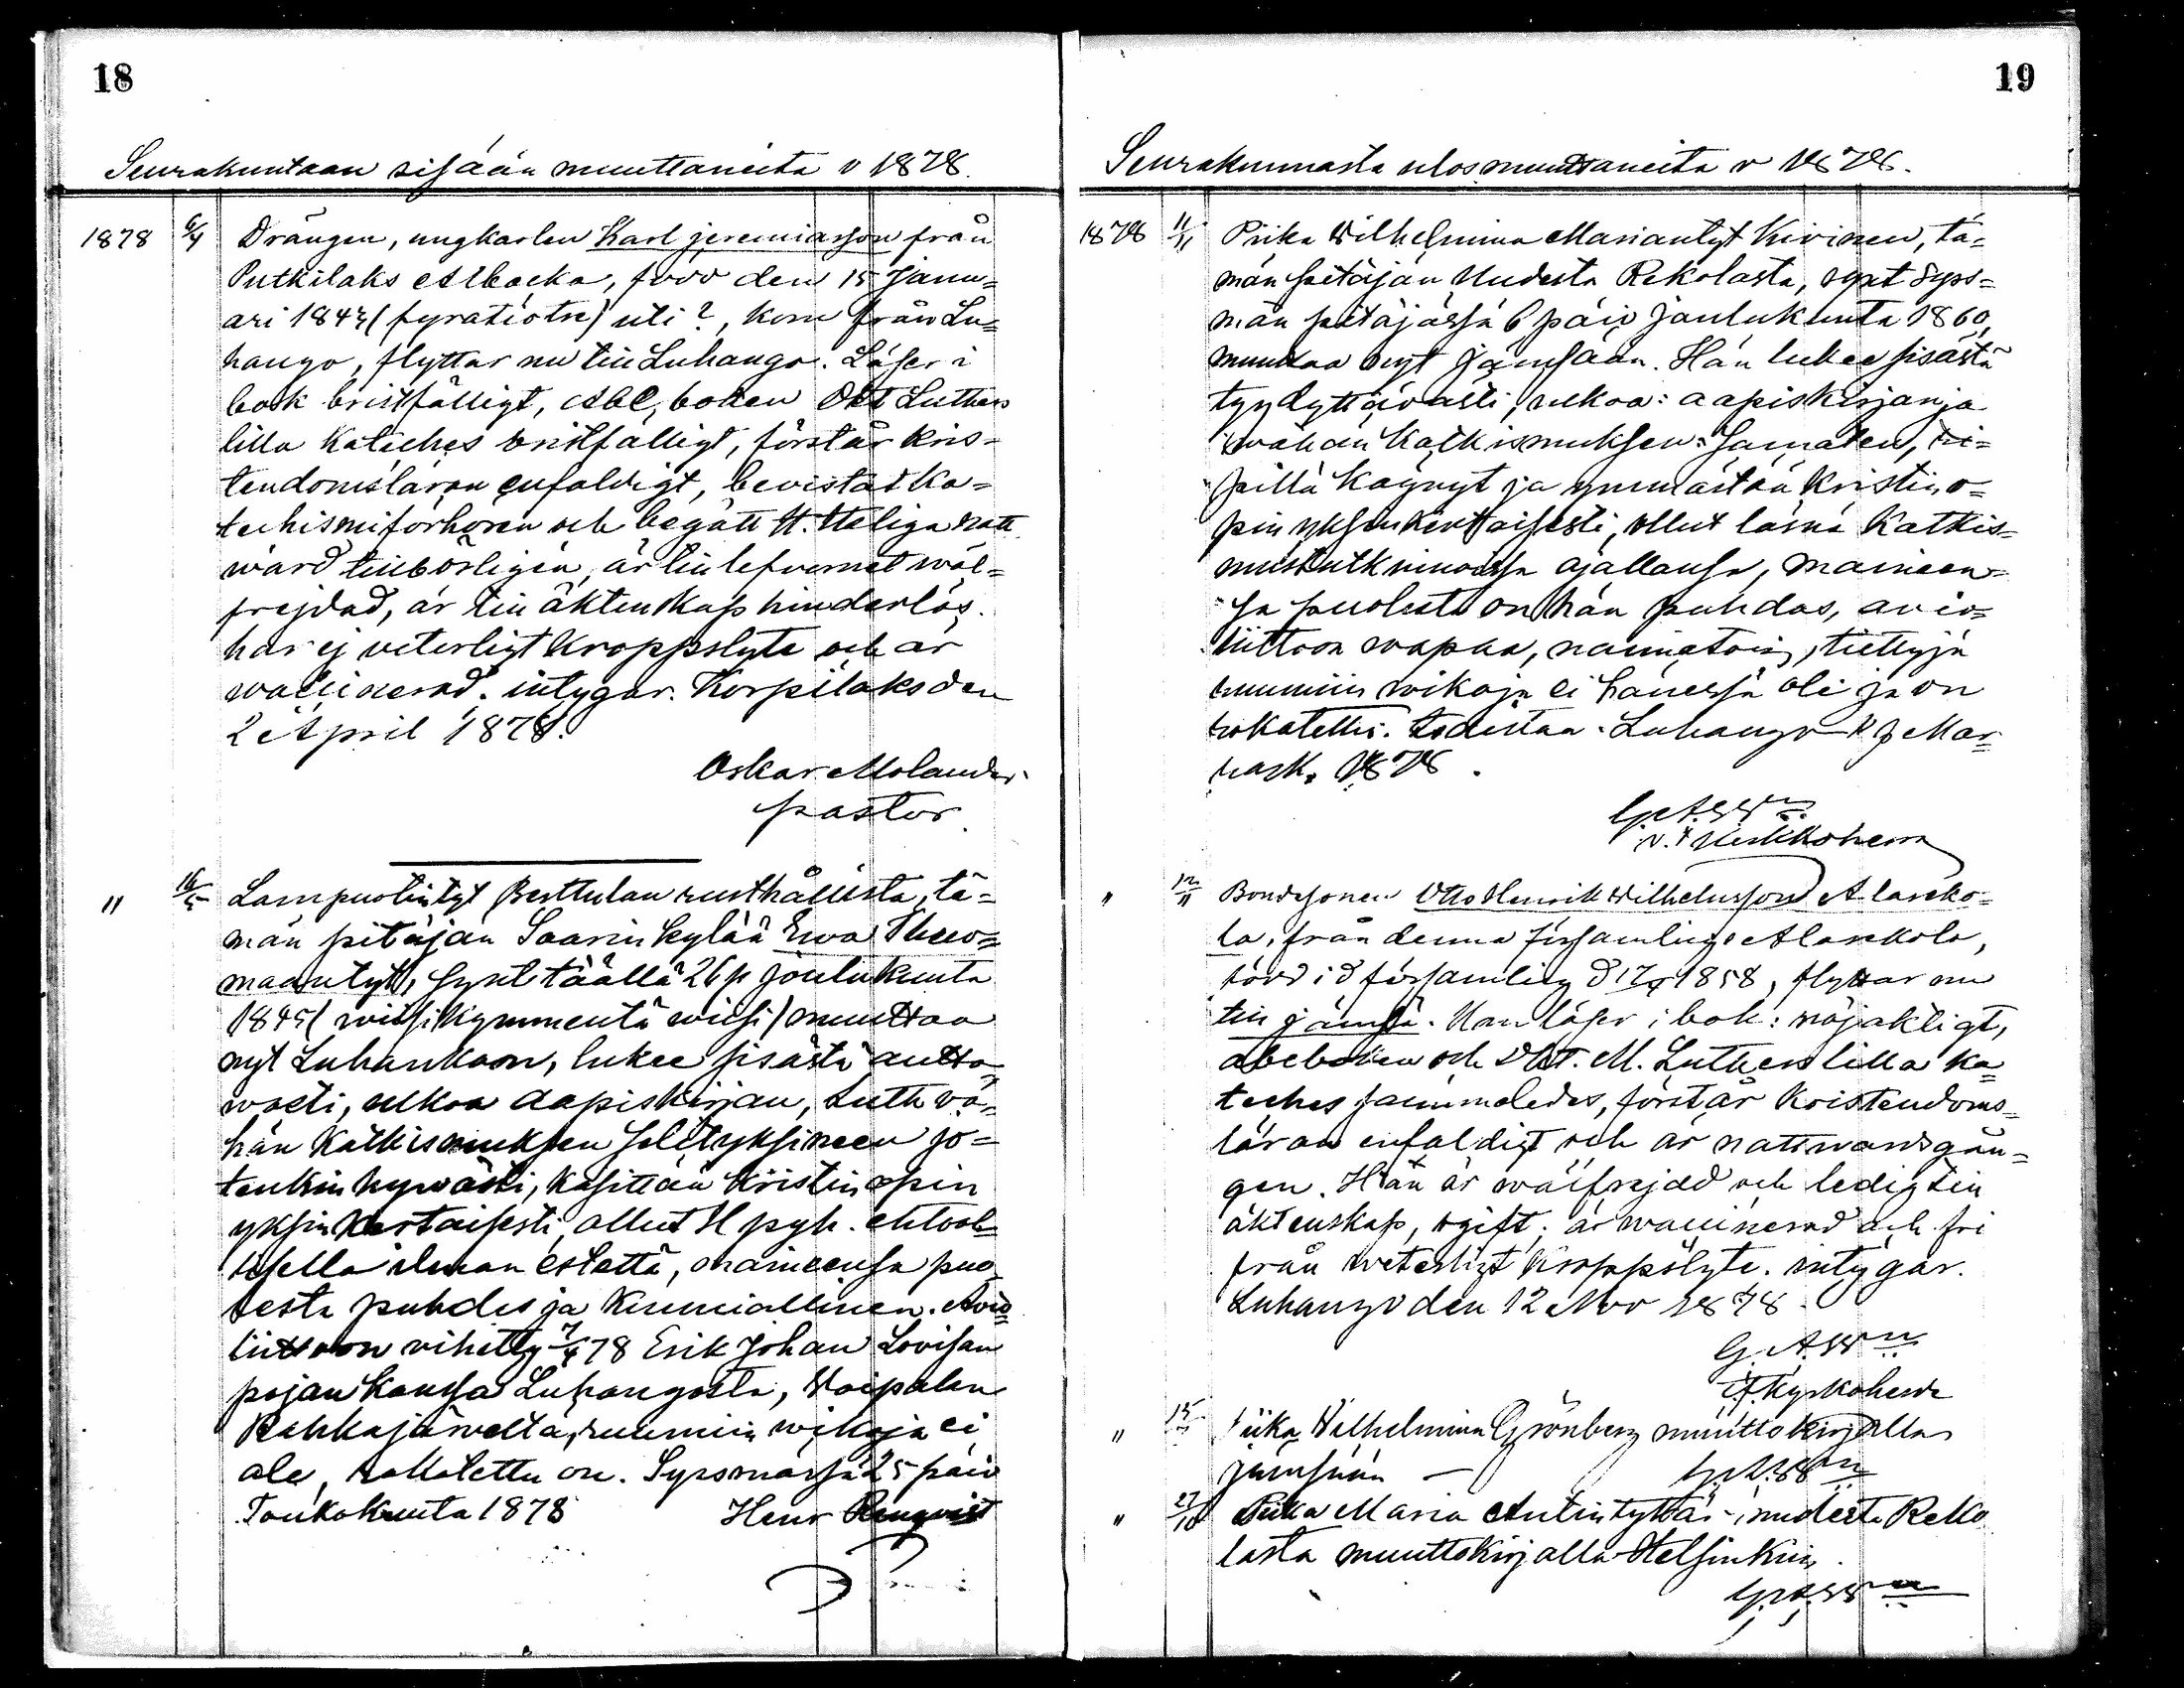 18
Seurakuntaan sisään muuttaneita v 1878.
1878 6/4 Drängen, ungkarlen Karl Jeremiasson från
Putkilaks Albacka, född den 15 Janu=
ari 1843 (fyratiotre) uti ?, kom från Lu=
hango, flyttar nu till Luhango. Läser i
bok bristfälligt, ABC boken Dkt Luthers
lilla Kateches bristfälligt, förstår kris=
tendomsläran enfaldigt, bevistat ka=
techismiförhören och begått H. Heliga natt
ward tillbörligen, är till lefvernet wäl=
frejdad, är till äktenskap hinderlös.
har ej veterligt kroppslyte och är
waccinerad. intygar. Korpilaks den
2 April 1878.
Oskar Molander.
pastor
" 16/5 Lampuotintyt Perttulan rusthållista, tä=
män pitäjän Saarin kylää Ewa
maantyt, synt täällä 26 p Joulukuuta
1845 (wiisi kymmentä wiisi) muuttaa
nyt Luhankoon, lukee sisästä autta=
wasti, ulkoa Aapiskirjan, Luth wä=
hän Katkismuksen selityksineen jo=
tenkin hywästi, käsittää Kristin opin
yksinkertaisesti, ollut H pyh. ehtool=
lisella ilman estettä, maineensa puo
lesta puhdas ja kunniallinen. Avio=
liittoon vihitty 7/4 78 Erik Johan Lovisan
pojan kanssa Luhangosta, Woipalan
Kahkajärweltä, ruumiin wikoja ei
ole, rokotettu on. Sysmässä 25 päiv
Toukokuuta 1878 Henr Renqvist
19
Seurakunnasta ulosmuuttaneita v 1878.
1878 11/11 Piika Wilhelmina Mariantyt Kivinen, tä=
män pitäjän Uudesta Rekolasta, synt Sys=
män pitäjässä 6 päiv Joulukuuta 1860,
muuttaa nyt Jämsään. Hän lukee sisästä
tyydyttävästi, ulkoa: aapiskirjan ja
wähän katkismuksen: Samaten, ri=
pillä käynyt ja ymmärtää kristin o=
pin yksinkertaisesti, ollut läsnä Katkis=
mustutkinnoissa ajallansa, maineen=
sa puolesta on hän puhdas, avio=
liittoon wapaa, naimatoin, tiettyjä
ruumiin wikoja ei hänessä ole ja on
rokotettu. todistaa. Luhango Mar=
rask. 1878.
v. t kirkkoherra
" 12/11 Bondesonen Otto Henrik Wilhelmsson Alareko=
la, från denna församlings Alarekola,
född i d församling d 1858, flyttar nu
till Jämsä. Han läser i bok: nöjaktigt,
abeboken och Dkt. M. Luthers lilla ka=
teches sammaledes, förstår Kristendoms=
läran enfaldigt och är nattwardsgån=
gen. Han är wälfrejdad och ledig till
äktenskap, ogift, är waccinerad och fri
från weterligt kroppslyte. intygar.
Luhango den 12 Nov 1878.
t.f kyrkoherde
" 15 Piika Wilhelmina Grönberg muuttokirjalla
Jämsään —
" 27/10 Piika Maria Antintytär, uudesta Reko
lasta muuttokirjalla Helsinkiin.